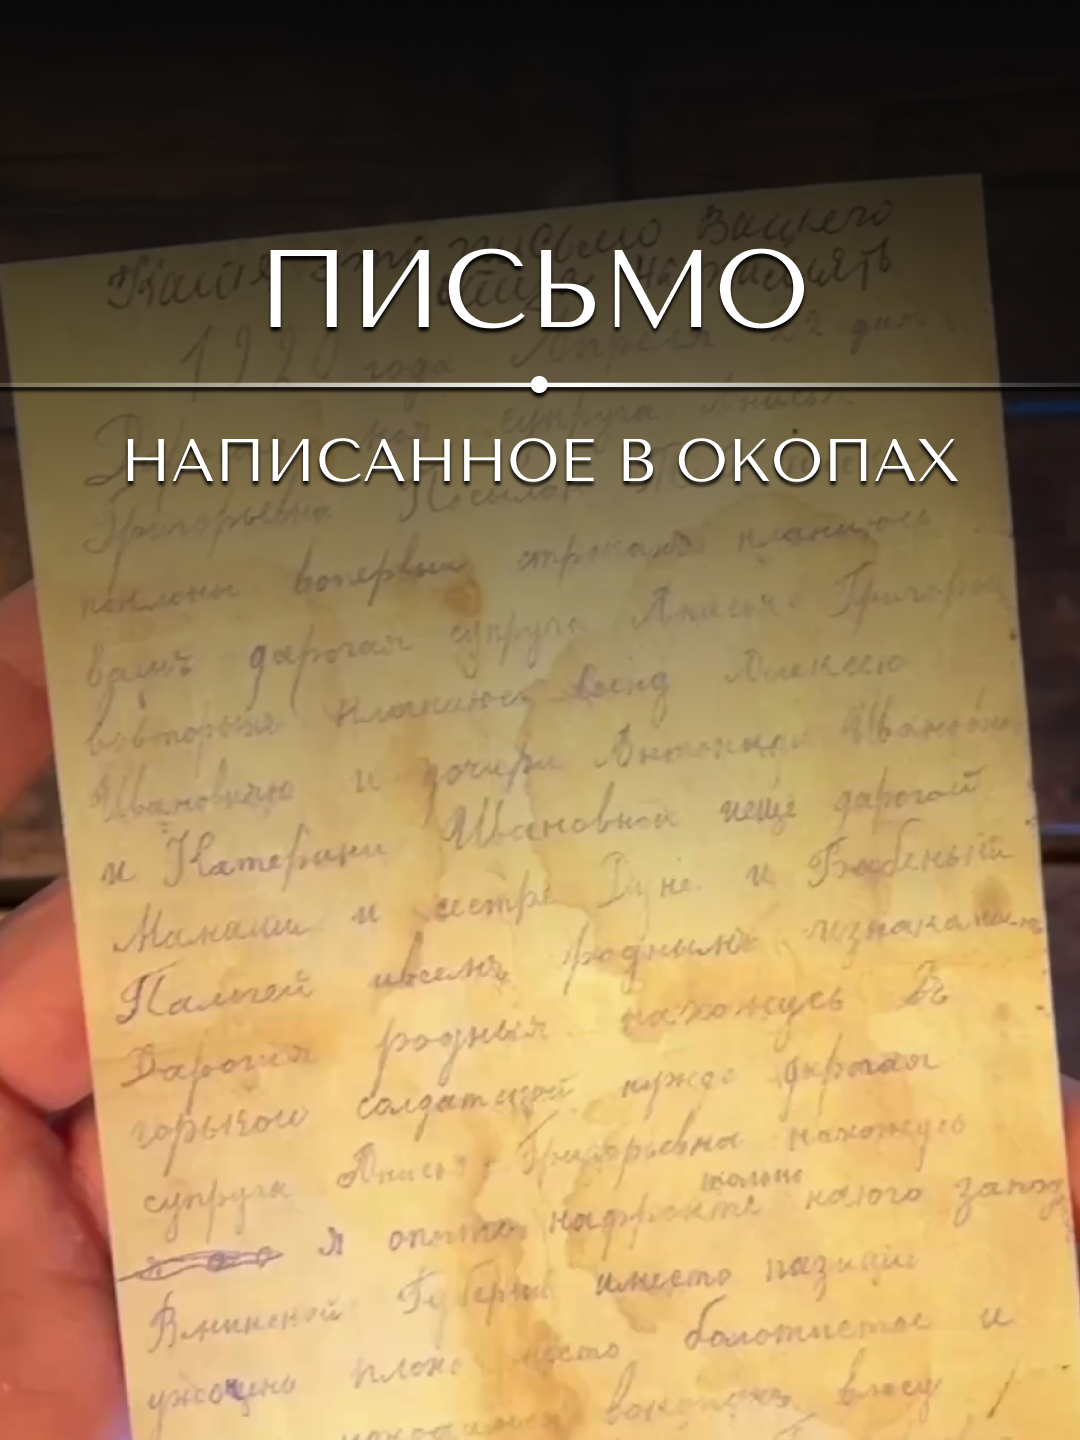 ПИСЬМО
НАПИСАННОЕ В ОКОПАХ
письмо Вашего
1920 года Апреля 22 дня
супруга Анисья
Григорьевна Посылаю
поклоны вопервыи строкахъ кланиюсь
вамъ дарогая супруга Анисья Григорь
вовторыя кланиюсь Алексею
Ивановичю и дочери Ивановн
и Катерини Ивановной иеще дарогой
Мамаши и сестре Дуне и Бабеньки
Палагей ивсемъ роднымъ изнакомым
Дарогия родныя нахожусь Въ
горькою солдатской нужде дарогая
супруга Анисья Григорьевна нахожусь
только
я опять нафронте наюго запад
Вминской Губерни иместо пазиции
ужоцено плохо место болотистое и
вокопахъ